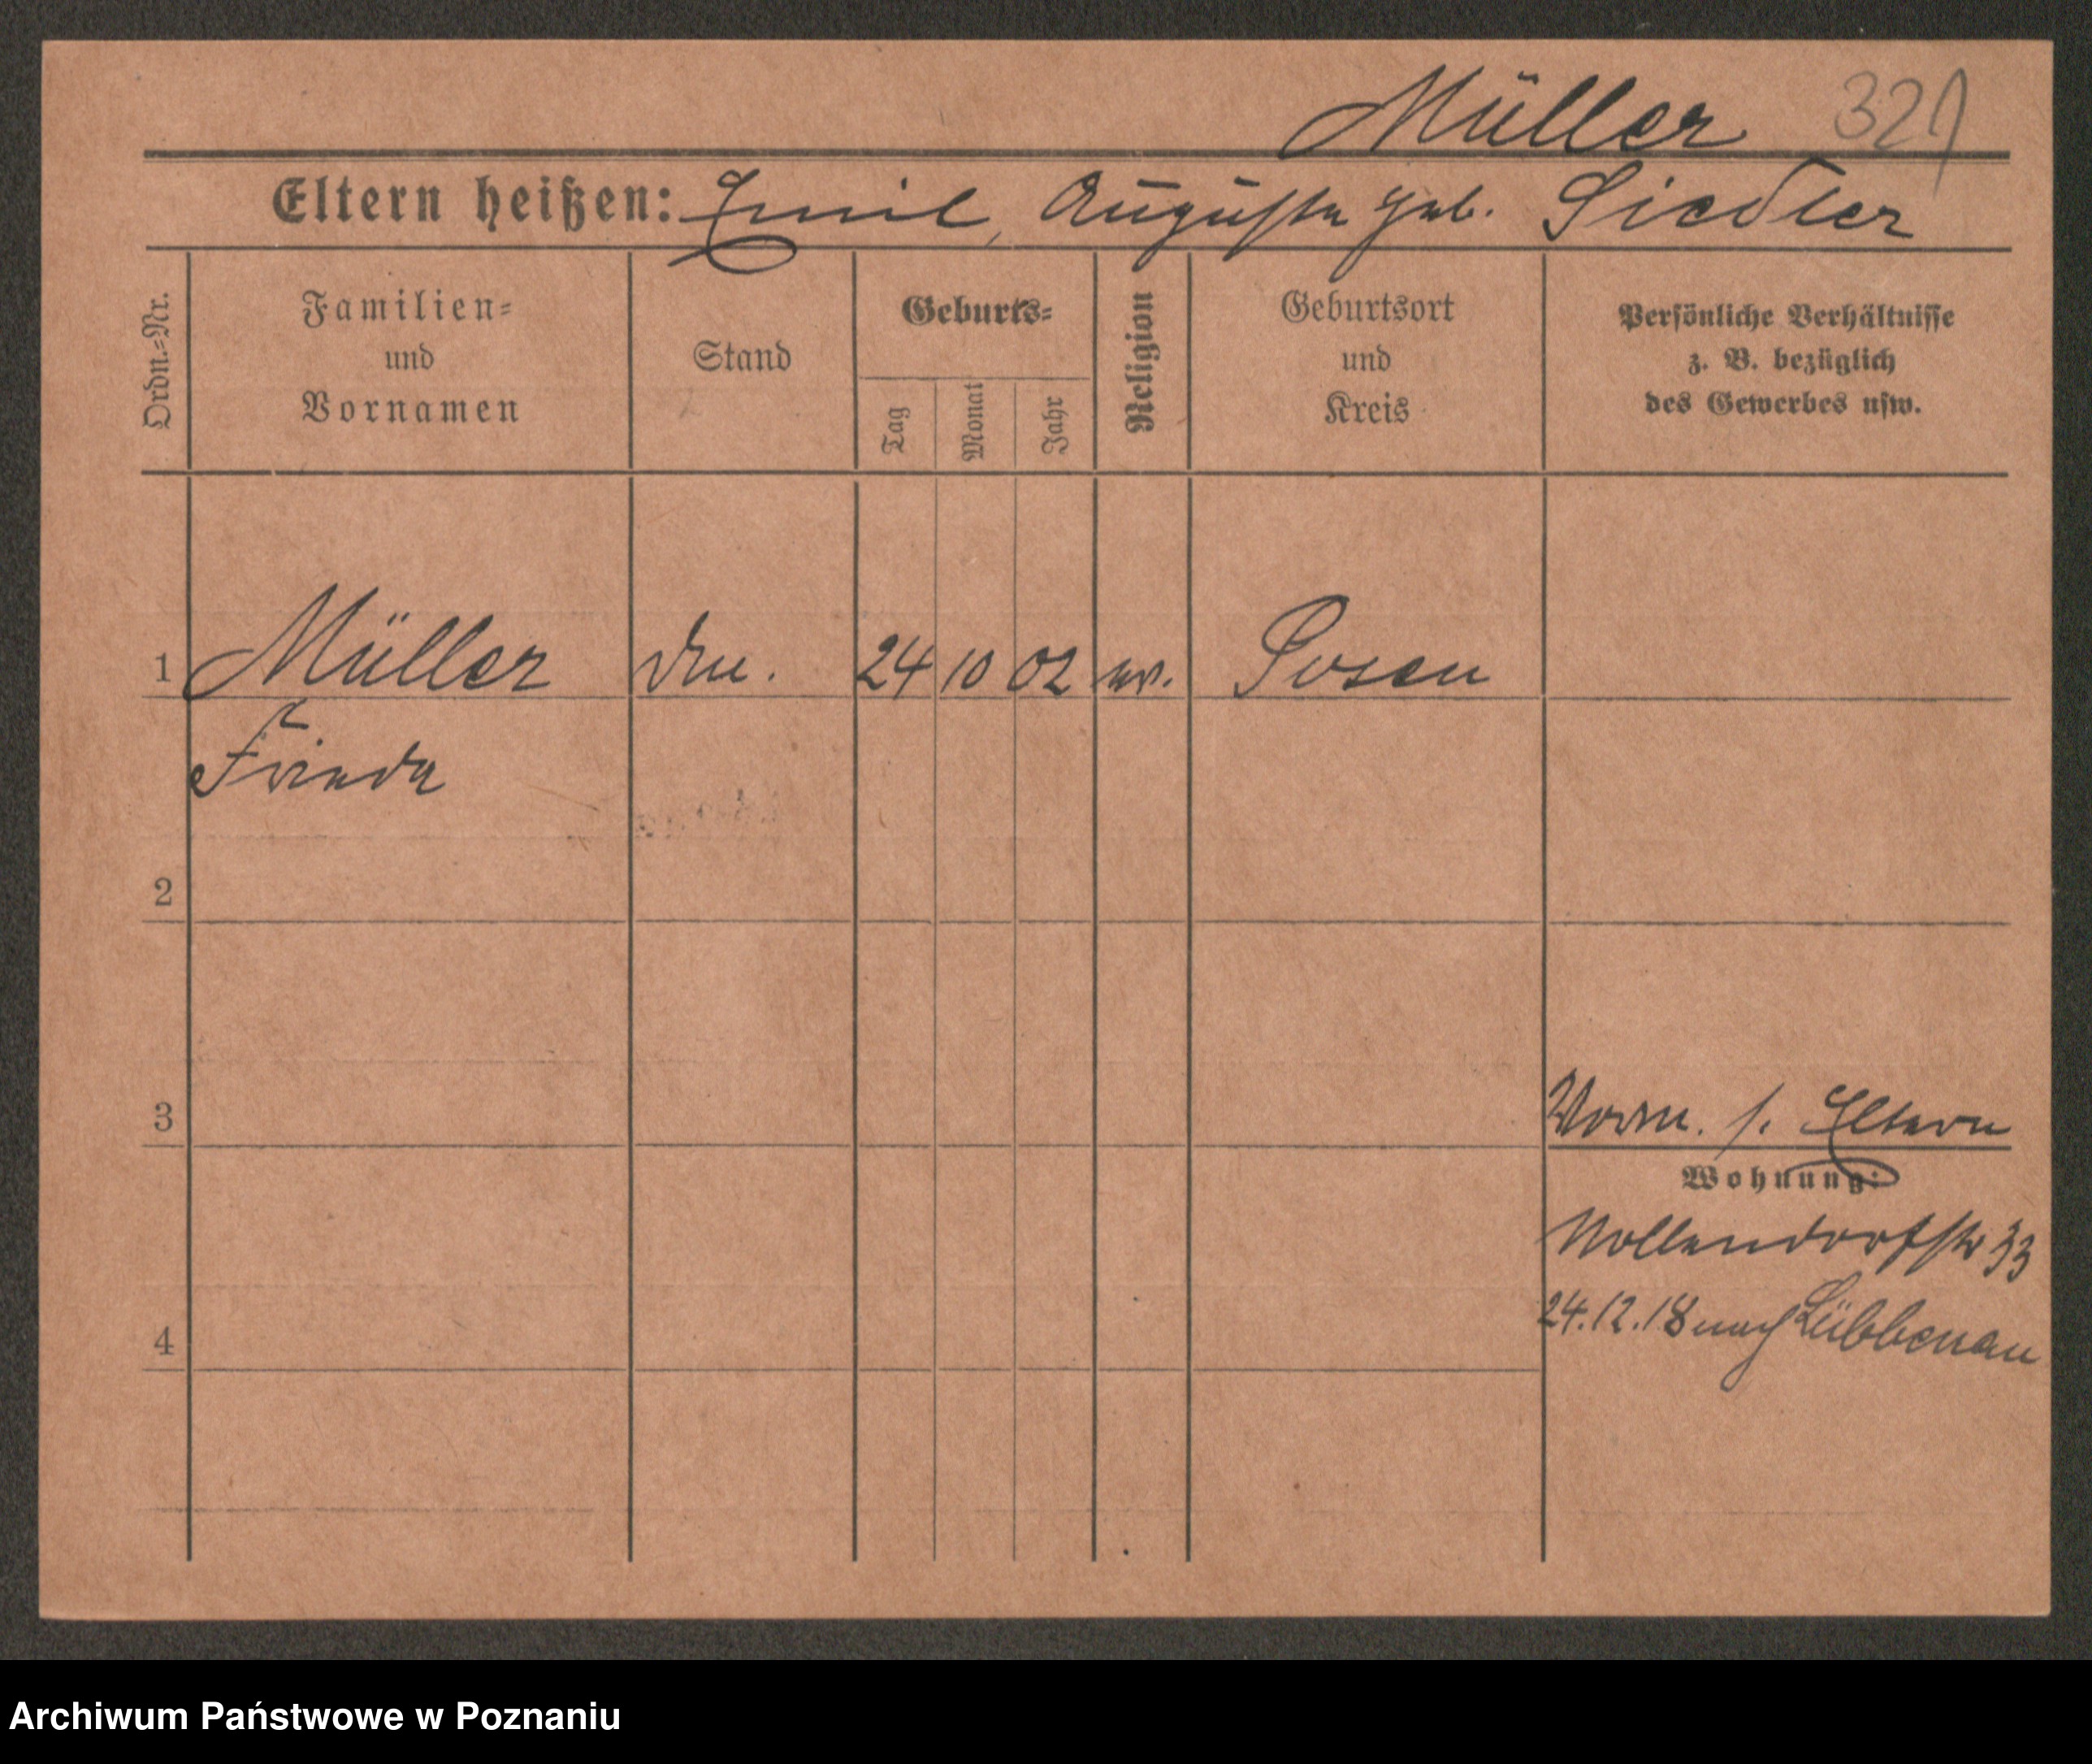 Müller 321
Eltern heißen: Emil, Auguste geb. Siedler
Ordn.=Nr.
Familien=
und
Vornamen
Stand
Geburts=
Tag
Monat
Jahr
Religion
Geburtsort
und
Kreis
Persönliche Verhältnisse
z. B. bezüglich
des Gewerbes usw.
1 Müller 24 10 02 ev. Posen
Frieda
2
3
Vorm. s. Eltern
Wohnung:
Nollendorfstr 33
4
24.12.18 nach Lübbenau
Archiwum Państwowe w Poznaniu